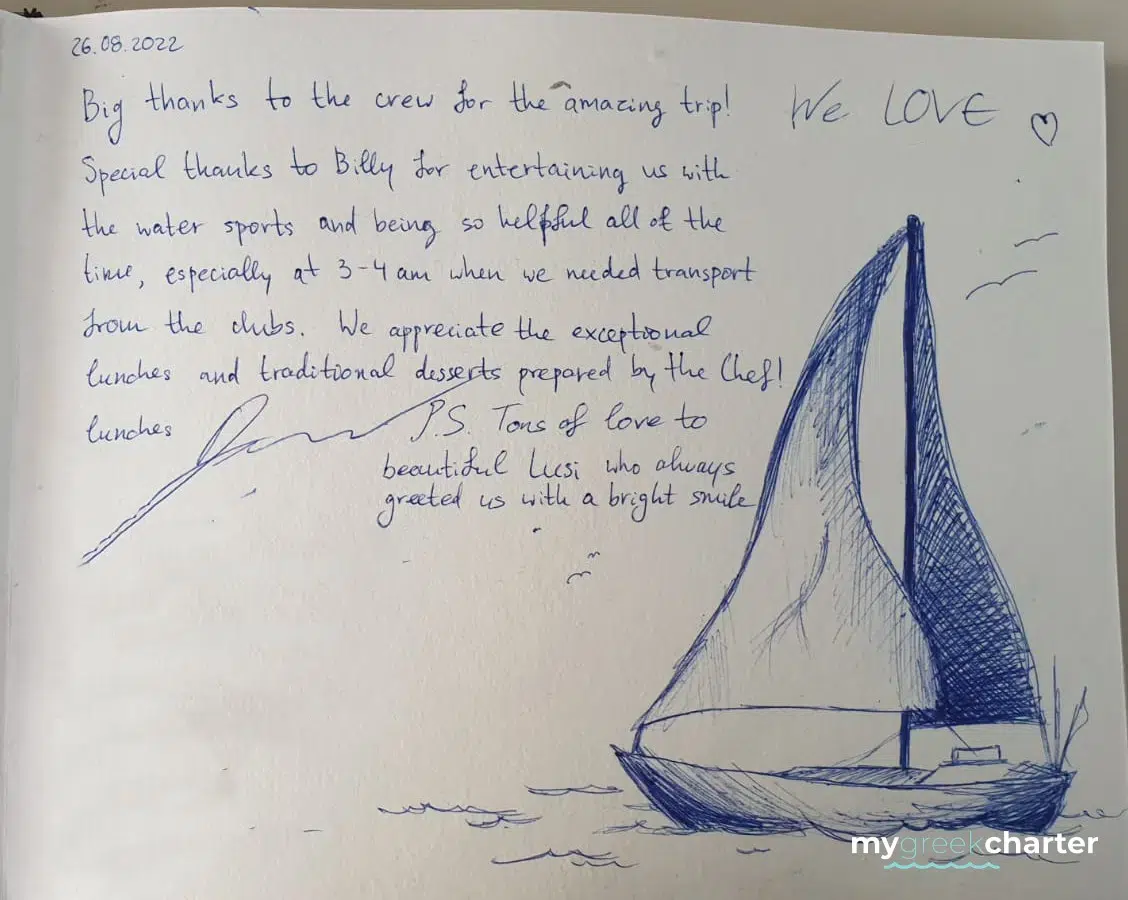 26.08.2022
Big thanks to the crew for the amazing trip!
We LOVE ♡
Special thanks to Billy for entertaining us with
the water sports and being so helpful all of the
time, especially at 3-4 am when we needed transport
from the clubs. We appreciate the exceptional
lunches and traditional desserts prepared by the Chef!
lunches
P.S. Tons of love to
beautiful Lusi who always
greeted us with a bright smile
mygreekcharter